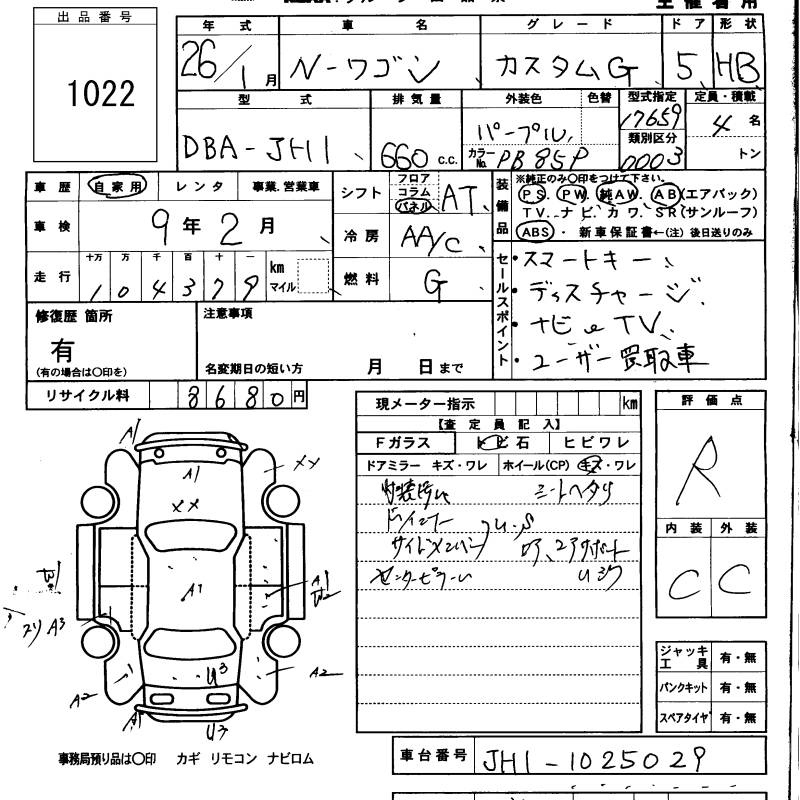 出品番号
1022
年 式 車 名 グ レ ー ド ド ア 形 状
26/1月 N-ワゴン カスタムG 5 HB
型 式 排気量 外装色 色替 型式指定 定員・積載
DBA-JH1 660 c.c. パープル 17659 4 名
カラーNo. PB85P 類別区分 0003 トン
車 歴 自家用 レンタ 事業.営業車
車 検 9 年 2 月
走 行 十万 万 千 百 十 一
1 0 4 3 7 9 km マイル
シフト フロア コラム パネル AT
冷 房 AA/C
燃 料 G
装備品 ※純正のみ〇印をつけて下さい。
PS. PW. 純AW. AB(エアバック)
TV. ナビ. カワ. SR(サンルーフ)
ABS・ 新車保証書←(注) 後日送りのみ
セールスポイント
・スマートキー
・ディスチャージ
・ナビ TV
・ユーザー買取車
修復歴 箇所
有
(有の場合は〇印を)
注意事項
名変期日の短い方 月 日まで
リサイクル料 8 6 8 0 円
現メーター指示 km
【査 定 員 記 入】
Fガラス トビ石 ヒビワレ
ドアミラー キズ・ワレ ホイール(CP) キズ・ワレ
シートヘタリ
サイドメンバー
センターピラー
評 価 点
R
内 装 外 装
C C
ジャッキ工具 有・無
パンクキット 有・無
スペアタイヤ 有・無
A1
A1
メメ
メメ
A1
A1
W2
A3
A2
A2
U3
A1
U3
事務局預り品は〇印 カギ リモコン ナビロム
車台番号 JH1-1025029